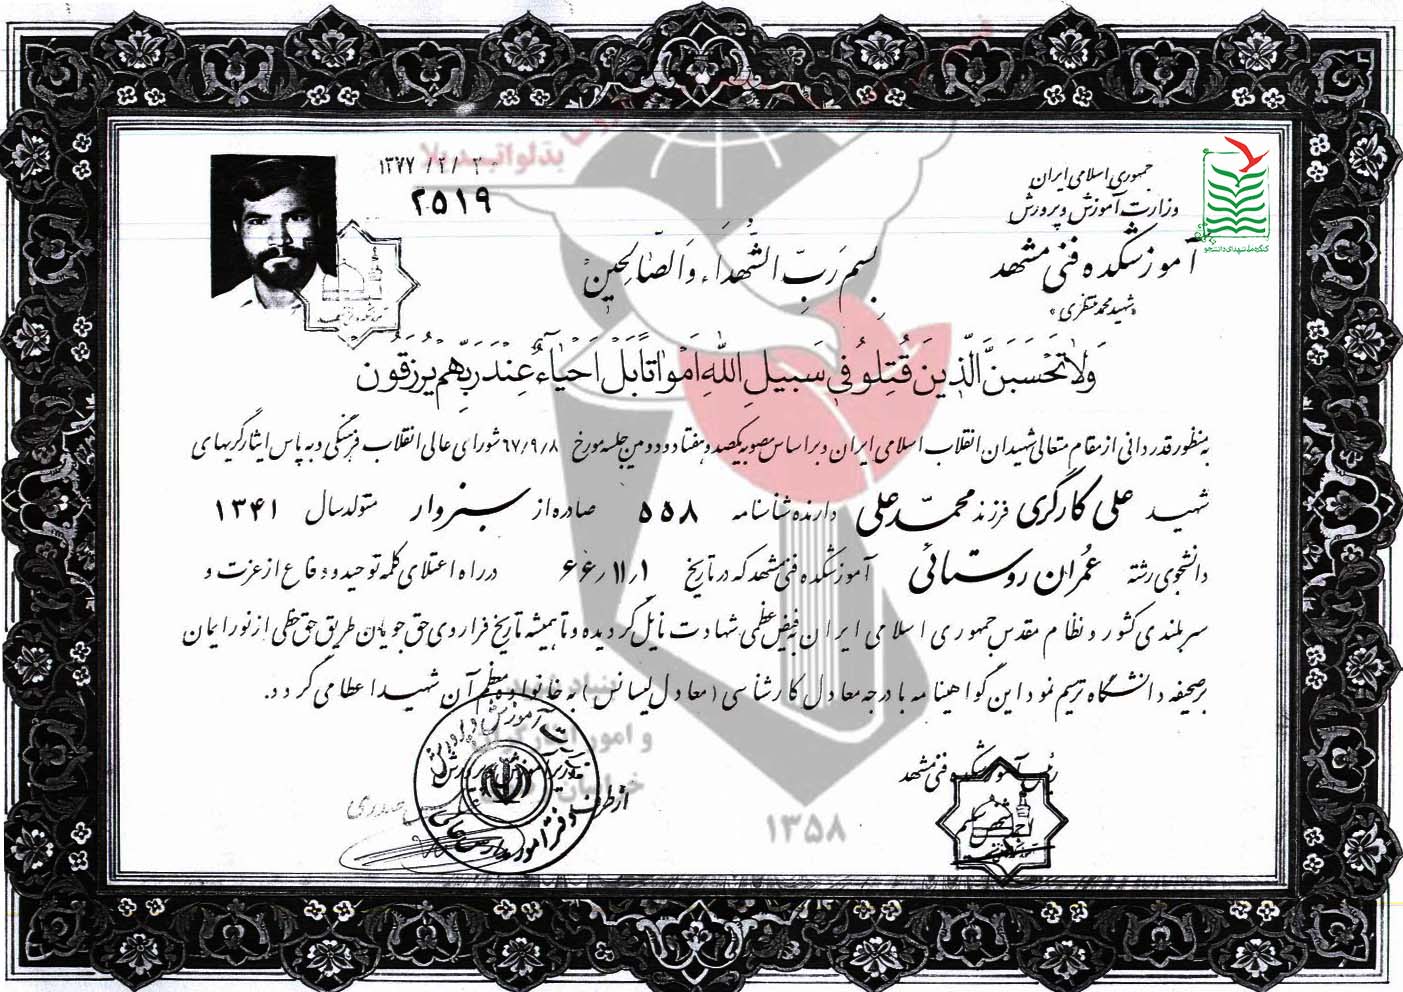 جمهوری اسلامی ایران
وزارت آموزش و پرورش
آموزشکده فنی مشهد
«شهید محمد منتظری»
کنگره ملی شهدای دانشجو
۱۳۷۷/۲/۲۰
۲۵۱۹
بِسْمِ رَبِّ الشُّهَدَاءِ وَالصّالِحینَ
وَلاتَحْسَبَنَّ الَّذینَ قُتِلُو فی سَبیلِ اللهِ اَمْواتاً بَلْ اَحْیآءٌ عِنْدَ رَبِّهِمْ یُرْزَقُون
به منظور قدردانی از مقام متعالی شهیدان انقلاب اسلامی ایران و براساس مصوبه یکصد و هفتاد و دومین جلسه مورخ ۶۷/۹/۸ شورای عالی انقلاب فرهنگی و به پاس ایثارگریهای
شهید علی کارگری فرزند محمّدعلی دارنده شناسنامه ۵۵۸ صادره از سبزوار متولد سال ۱۳۴۱
دانشجوی رشته عمران روستائی آموزشکده فنی مشهد که در تاریخ ۶۶/۱۱/۱ در راه اعتلای کلمه توحید و دفاع از عزت و
سربلندی کشور و نظام مقدس جمهوری اسلامی ایران به فیض عظمی شهادت نایل گردیده و تا همیشه تاریخ فرا روی حق جویان طریق حق خطی از نور ایمان
بر صحیفه دانشگاه ترسیم نمود این گواهینامه با درجه معادل کارشناسی (معادل لیسانس) به خانواده معظم آن شهید اعطا می گردد.
رئیس آموزشکده فنی مشهد
وزیر آموزش و پرورش
از طرف
بنیاد شهید
و امور ایثارگران
۱۳۵۸